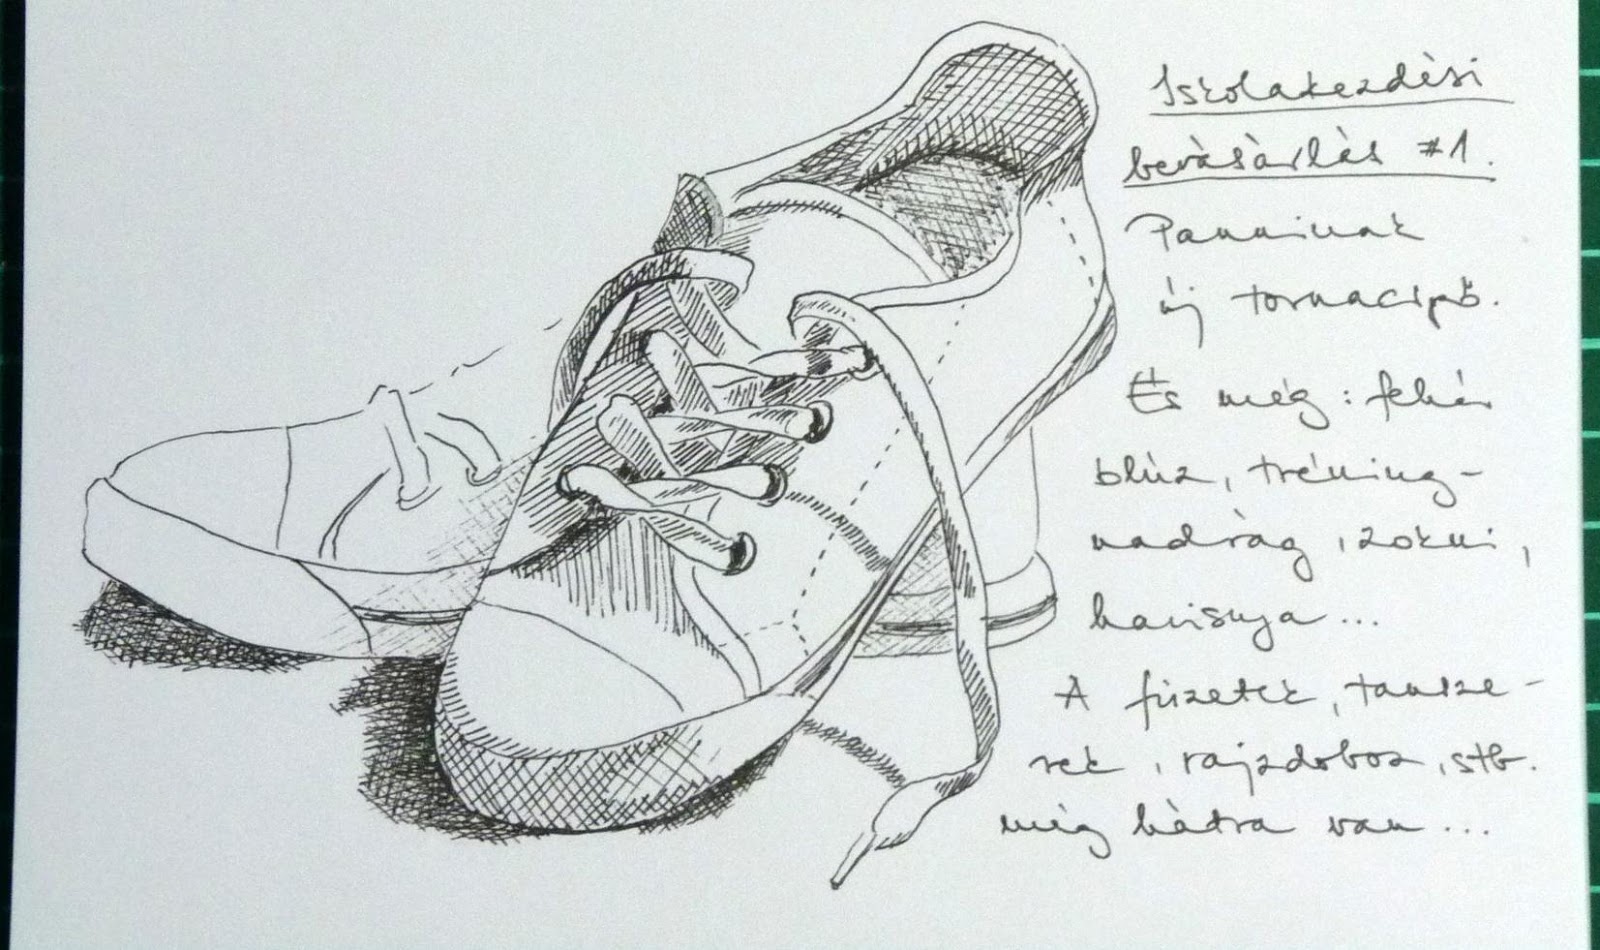 Iskolakezdési
bevásárlás #1.
Panninak
új tornacipő.
És még: fehér
blúz, tréning-
nadrág, zokni,
harisnya...
A füzetek, tansze-
rek, rajzdoboz, stb.
még hátra van...